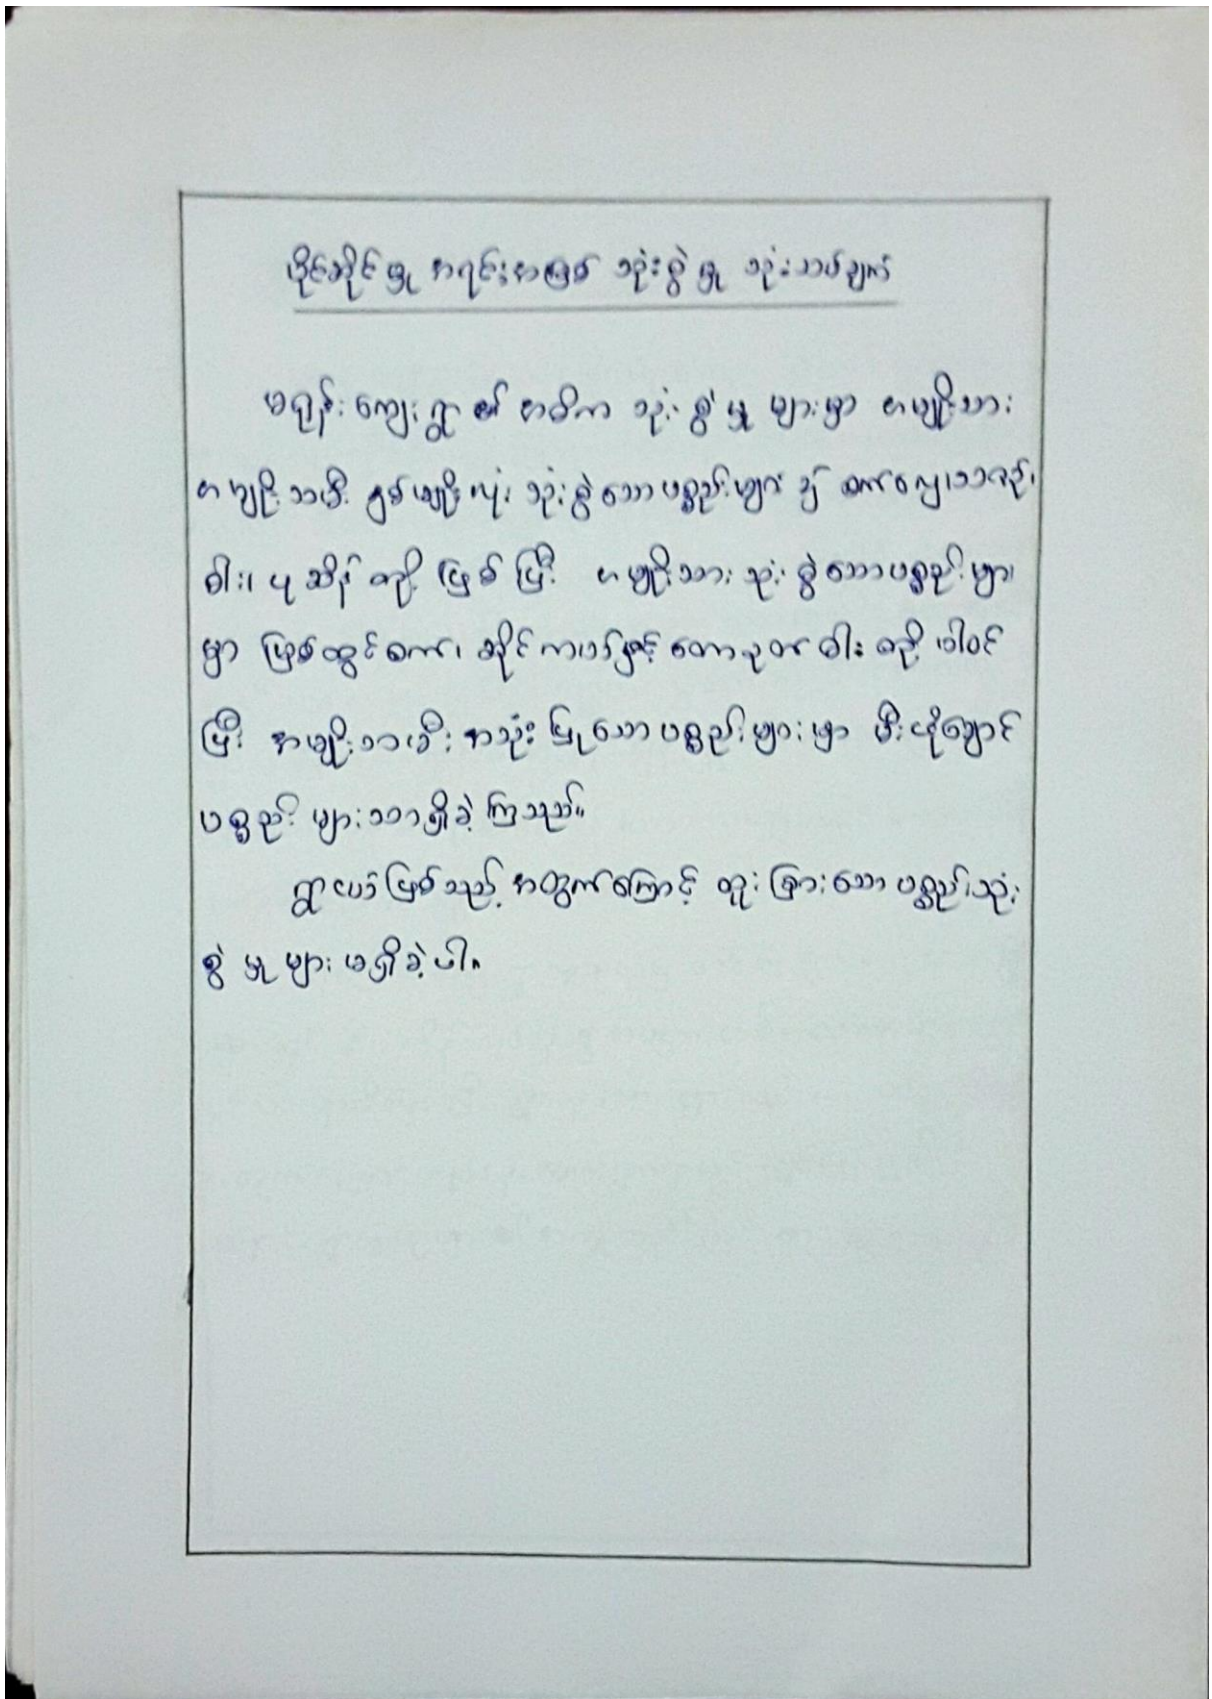 ပိုင်ဆိုင်မှု အရင်းအမြစ် သုံးစွဲမှု သုံးသပ်ချက်
မရမ်းကျေးရွာ၏ အဓိက သုံးစွဲမှု များမှာ အမျိုးသား
အမျိုးသမီး နှစ်မျိုးလုံး သုံးစွဲသောပစ္စည်းများ၌
ဓါး၊ ပုဆိန် တို့ ဖြစ်ပြီး အမျိုးသား သုံးစွဲသောပစ္စည်းများ
မှာ မြစ်တွင်စက်၊ ဆိုင်ကယ်နှင့် တောသုတ်ဓါး တို့ ပါဝင်
ပြီး အမျိုးသမီး အသုံးပြုသောပစ္စည်းများမှာ မီးဖိုချောင်
ပစ္စည်း များသာရှိခဲ့ကြသည်။
ရွာငယ်ဖြစ်သည့် အတွက်ကြောင့် ထူးခြားသော ပစ္စည်းသုံး
စွဲမှုများ မရှိခဲ့ပါ။